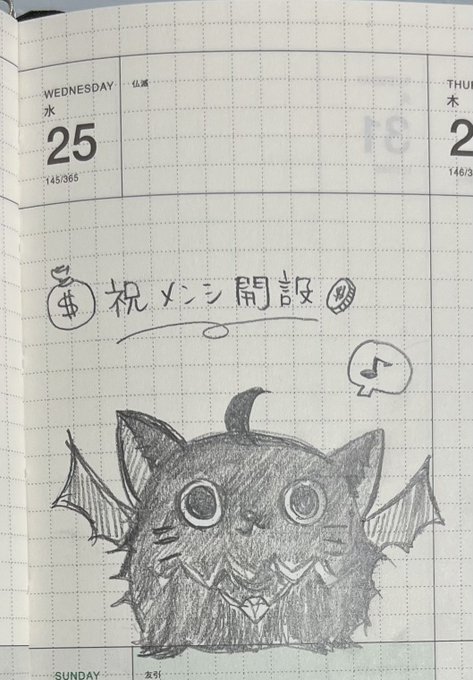 WEDNESDAY
水
25
145/365
仏滅
THUR
木
2
146/3
$ 祝メンシ開設
♪
SUNDAY
友引